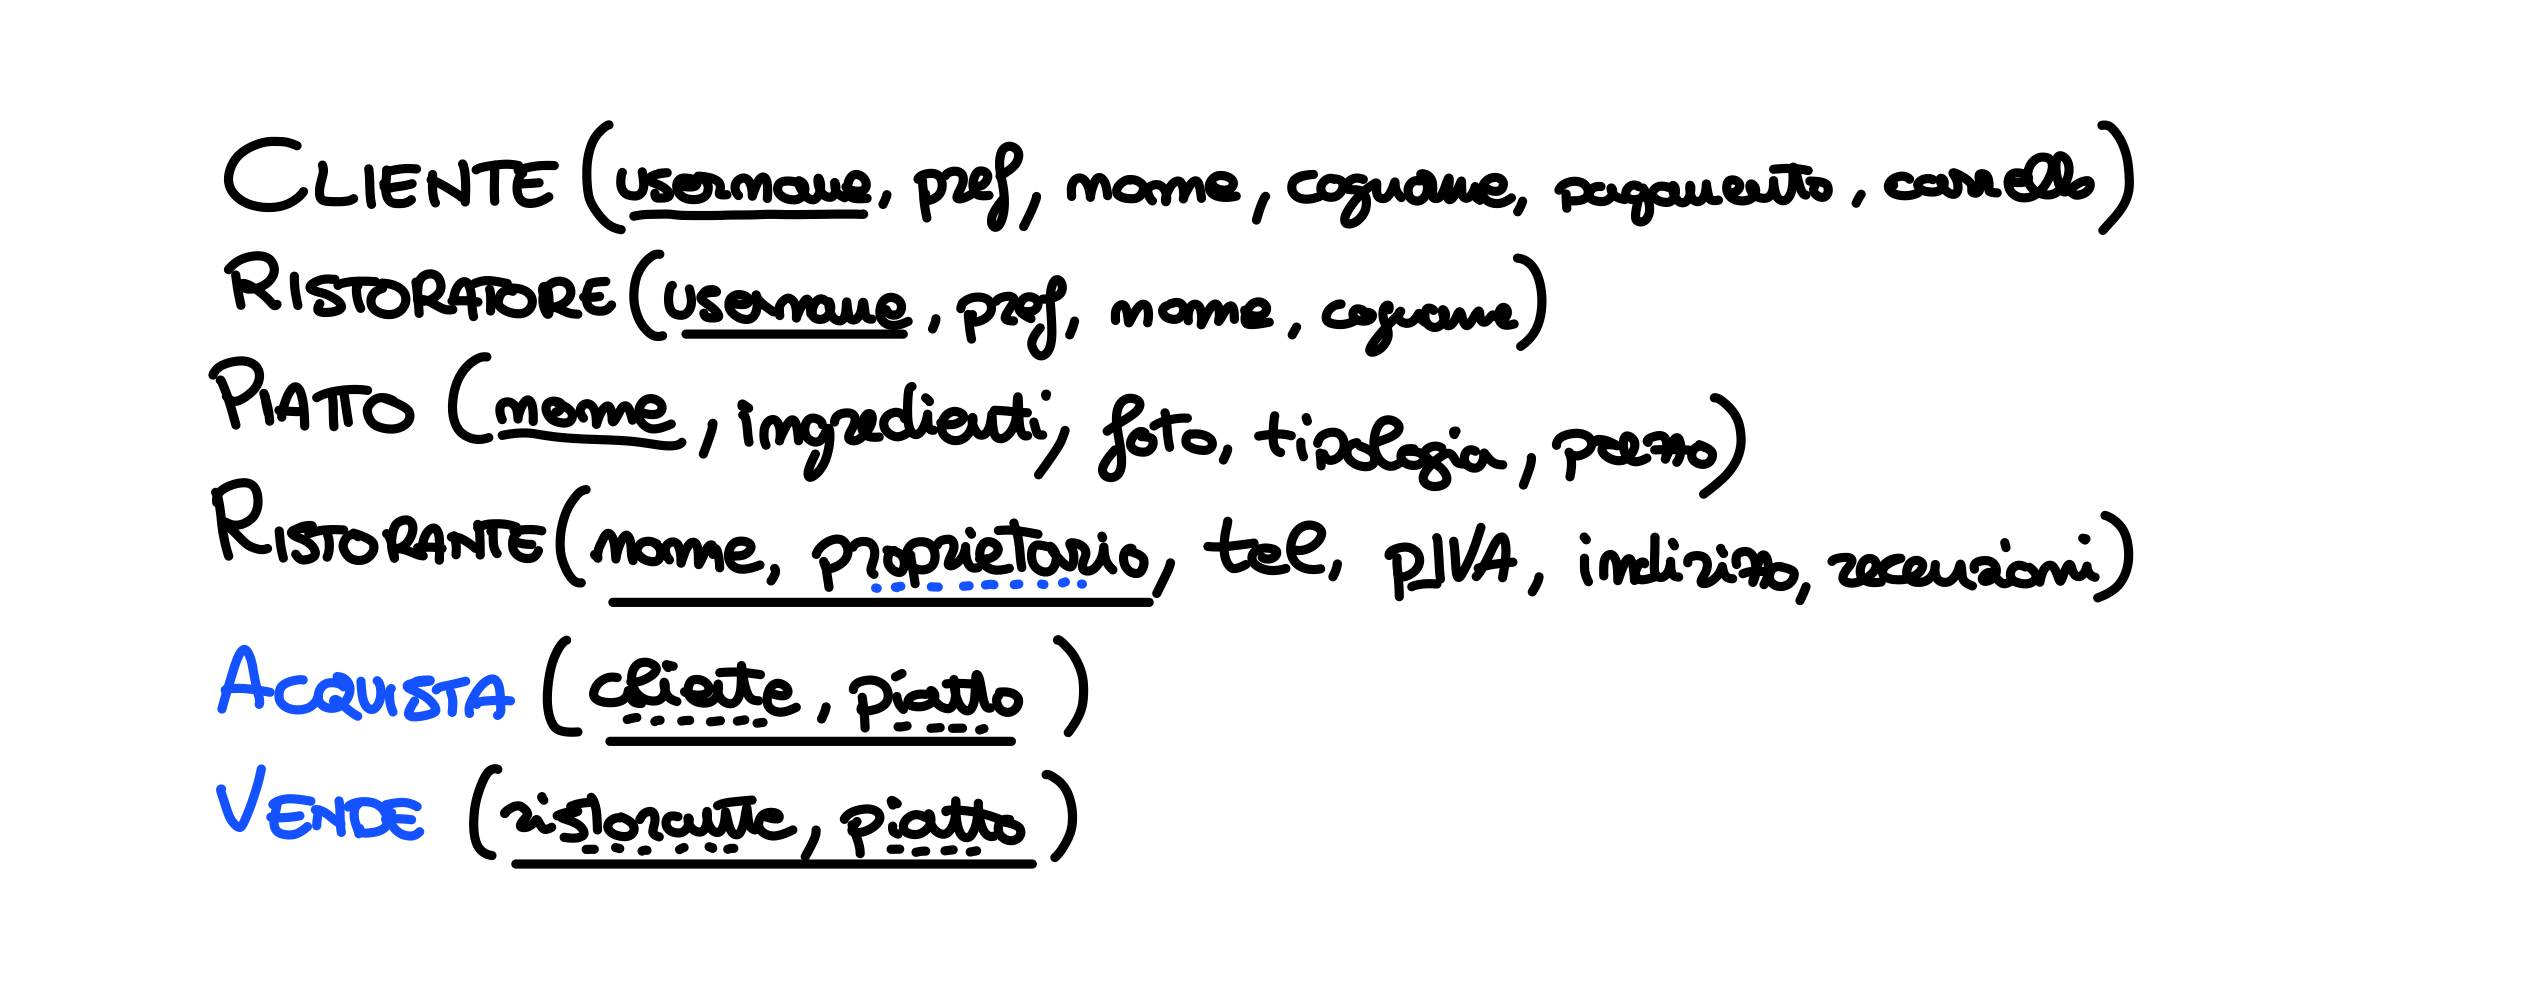 CLIENTE (username, pref, nome, cognome, pagamento, carrello)
RISTORATORE (username, pref, nome, cognome)
PIATTO (nome, ingredienti, foto, tipologia, prezzo)
RISTORANTE (nome, proprietario, tel, pIVA, indirizzo, recensioni)
ACQUISTA (cliente, piatto)
VENDE (ristorante, piatto)